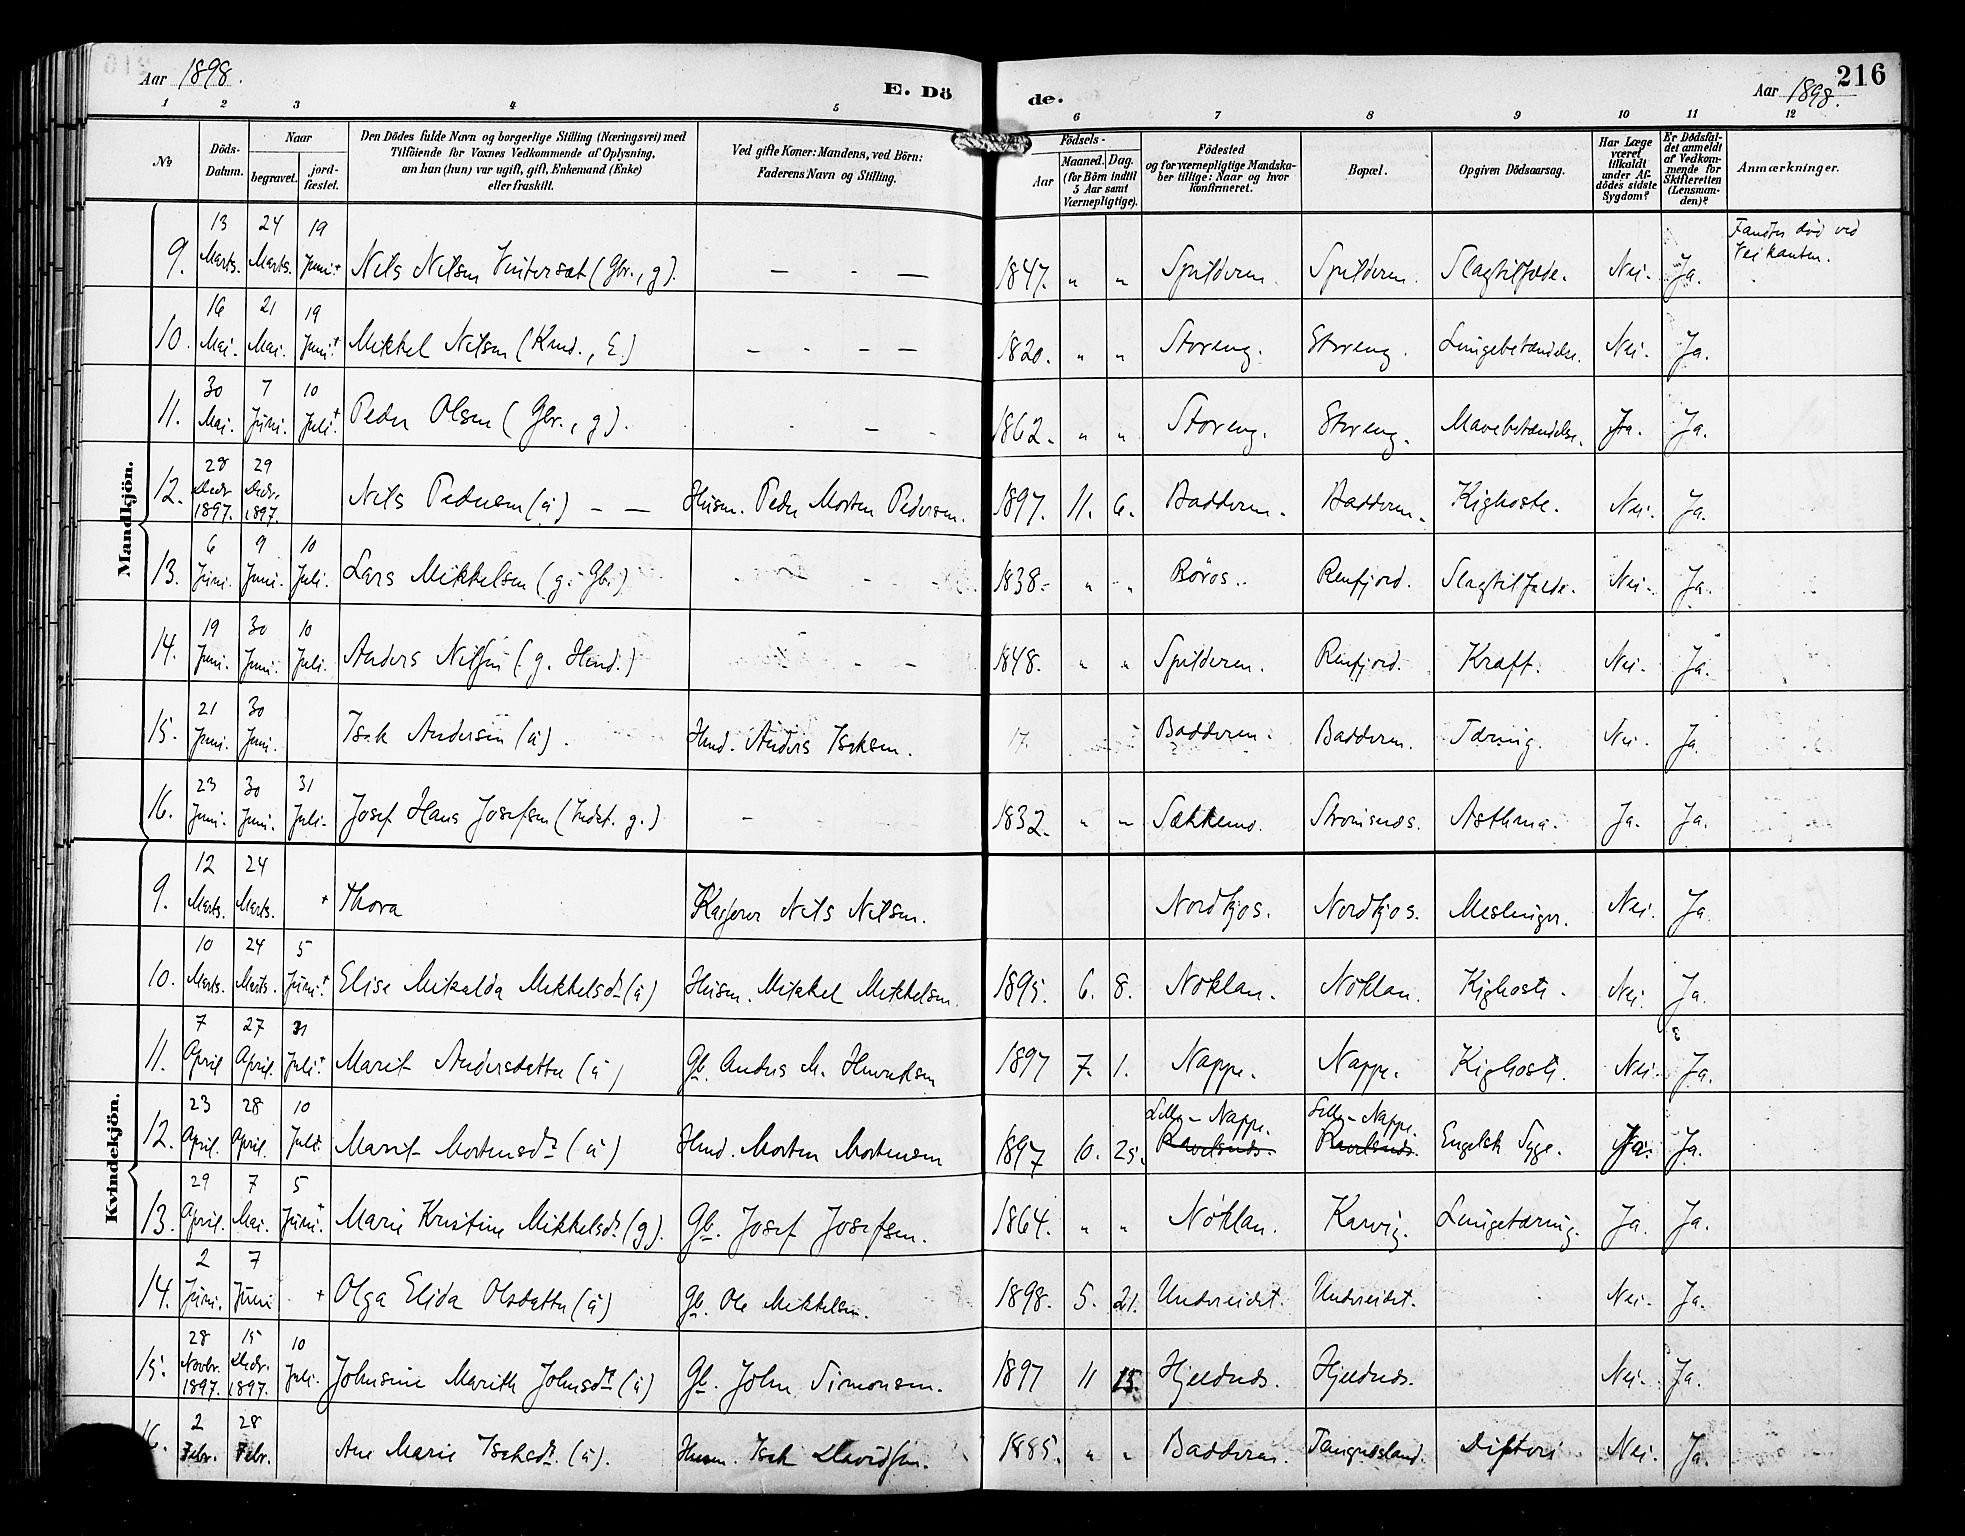 Aar 1898.
E. Döde.
Aar 1898.
216
1 2 3 4 5 6 7 8 9 10 11 12
No
Döds-Datum.
Naar
begravet.
jord-fæstet.
Den Dödes fulde Navn og borgerlige Stilling (Næringsvei) med
Tilföiende for Voxnes Vedkommende af Oplysning,
om han (hun) var ugift, gift, Enkemand (Enke)
eller fraskilt.
Ved gifte Koner: Mandens, ved Börn:
Faderens Navn og Stilling.
Födsels-
Aar
Maaned. Dag.
(for Börn indtil
5 Aar samt
Værnepligtige).
Födested
og for værnepligtige Mandska-
ber tillige: Naar og hvor
konfirmeret.
Bopæl.
Opgiven Dödsaarsag.
Har Læge
været
tilkaldt
under Af-
dödes sidste
Sygdom?
Er Dödsfal-
det anmeldt
af Vedkom-
mende for
Skifteretten
(Lensman-
den)?
Anmærkninger.
Mandkjön.
9. 13 Marts. 24 Marts. 19 Juni+ Nils Nilsen Vintersæt (Gbr., g). — - — 1847. " " Spilderen. Spilderen. Slagtilfælde. Nei. Ja. Fandtes död ved Veikanten.
10. 16 Mai. 21 Mai. 19 Juni+ Mikkel Nilsen (Kmd., E.) — - — — 1820. " " Storeng. Storeng. Lungebetændelse. Nei. Ja.
11. 30 Mai. 7 Juni. 10 Juli+ Peder Olsen (Gbr., g). 1862. " " Storeng. Storeng. Mavebetændelse. Ja. Ja.
12. 28 Decbr 1897. 29 Decbr. 1897. Nils Pedersen (ü) — — Husm. Peder Morten Pedersen. 1897. 11. 6. Badderen. Badderen. Kighoste. Nei. Ja.
13. 6 Juni. 9 Juni. 10 Juli. Lars Mikkelsen (g. Gb.) 1838. " " Röros. Renfjord. Slagtilfælde. Nei. Ja.
14. 19 Juni. 30 Juni. 10 Juli. Anders Nilsen (g. Hmd.) 1848. " " Spilderen. Renfjord. Kræft. Nei. Ja.
15. 21 Juni. 30 Juni. Isak Andersen (ü). Hmd. Anders Isaksen. 17. Badderen. Badderen. Tæring. Nei. Ja.
16. 23 Juni. 30 Juni. 31 Juli. Josef Hans Josefsen (Indst. g.) — 1832. " " Sækkemo. Strömsnæs. Asthma. Ja. Ja.
Kvindekjön.
9. 12 Marts. 24 Marts. + Thora Nils Nilsen. Nordkjos. Nordkjos. Meslinger. Nei. Ja.
10. 10 Marts. 24 Marts. 5 Juni+ Elise Mikalda Mikkelsdr (ü) Husm. Mikkel Mikkelsen. 1895. 6. 8. Nöklan. Nöklan. Kighoste. Nei. Ja.
11. 7 April 27 April. 31 Juli+ Marit Andersdatter (ü) Gb. Anders M. Henriksen 1897 7. 1. Nappe. Nappe. Kighoste. Nei. Ja.
12. 23 April. 28 April. 10 Juli. Marit Mortensdr (ü) Hmd. Morten Mortensen 1897 10. 25. Lille-Nappe. Lille-Nappe. Engelsk Syge. Ja. Ja.
13. 29 April. 7 Mai. 5 Juni.+ Marie Kristine Mikkelsdr (g). Gb. Josef Josefsen. 1864. " " Nöklan. Karvig. Lungetæring. Ja. Ja.
14. 2 Juni. 7 Juni + Olga Elida Olsdatter (ü) Gb. Ole Mikkelsen. 1898. 5. 21. Undereidet. Undereidet. Nei. Ja.
15. 28 Novbr. 1897. 15 Decbr. 1897. 10 Juli. Johnsine Marith Johnsdt (ü) Gb. John Simonsen. 1897 11 15. Hjeldnæs. Hjeldnæs. Nei. Ja.
16. 2 Febr. 28 Febr. Ane Marie Isaksdt. (ü). Husm. Isak Davidsen. 1885. " " Badderen. Tangnesland. Difteri Nei. Ja.